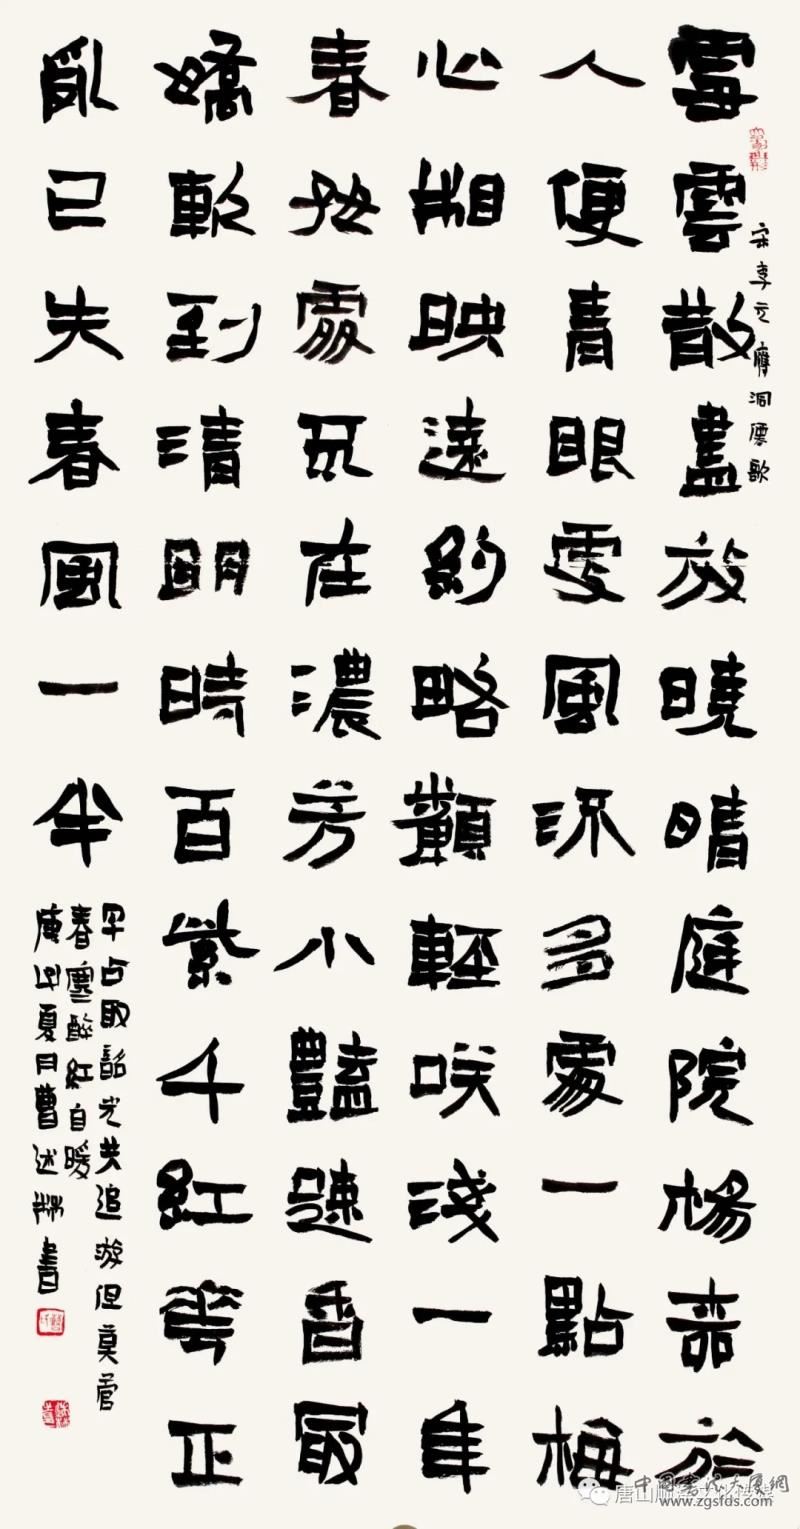 宋李元膺洞僊歌
雪雲散盡放曉晴庭院楊柳於
人便青眼更風流多處一點梅
心相映遠約略顰輕咲淺一年
春好處不在濃芳小豔疎香最
嬌軟到清明時百紫千紅華正
亂已失春風一半
早占取韶光共追游但莫管
春寒醉紅自暖
庚子夏月曹述書
中國書法大厦網
www.zgsfds.com